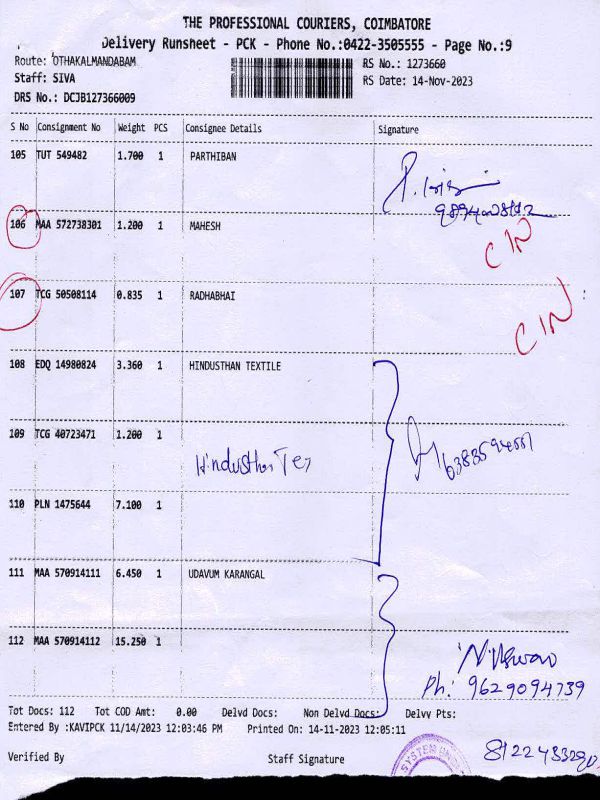 THE PROFESSIONAL COURIERS, COIMBATORE
Delivery Runsheet - PCK - Phone No.:0422-3505555 - Page No.:9
Route: OTHAKALMANDABAM RS No.: 1273660
Staff: SIVA RS Date: 14-Nov-2023
DRS No.: DCJB127366009
S No Consignment No Weight PCS Consignee Details Signature
105 TUT 549482 1.700 1 PARTHIBAN
106 MAA 572738301 1.200 1 MAHESH
CIN
107 TCG 50508114 0.835 1 RADHABHAI
CIN
108 EDQ 14980824 3.360 1 HINDUSTHAN TEXTILE
109 TCG 40723471 1.200 1
Hindusthan Tex
110 PLN 1475644 7.100 1
111 MAA 570914111 6.450 1 UDAVUM KARANGAL
112 MAA 570914112 15.250 1
Ph: 9629094739
Tot Docs: 112 Tot COD Amt: 0.00 Delvd Docs: Non Delvd Docs: Delvv Pts:
Entered By :KAVIPCK 11/14/2023 12:03:46 PM Printed On: 14-11-2023 12:05:11
Verified By Staff Signature